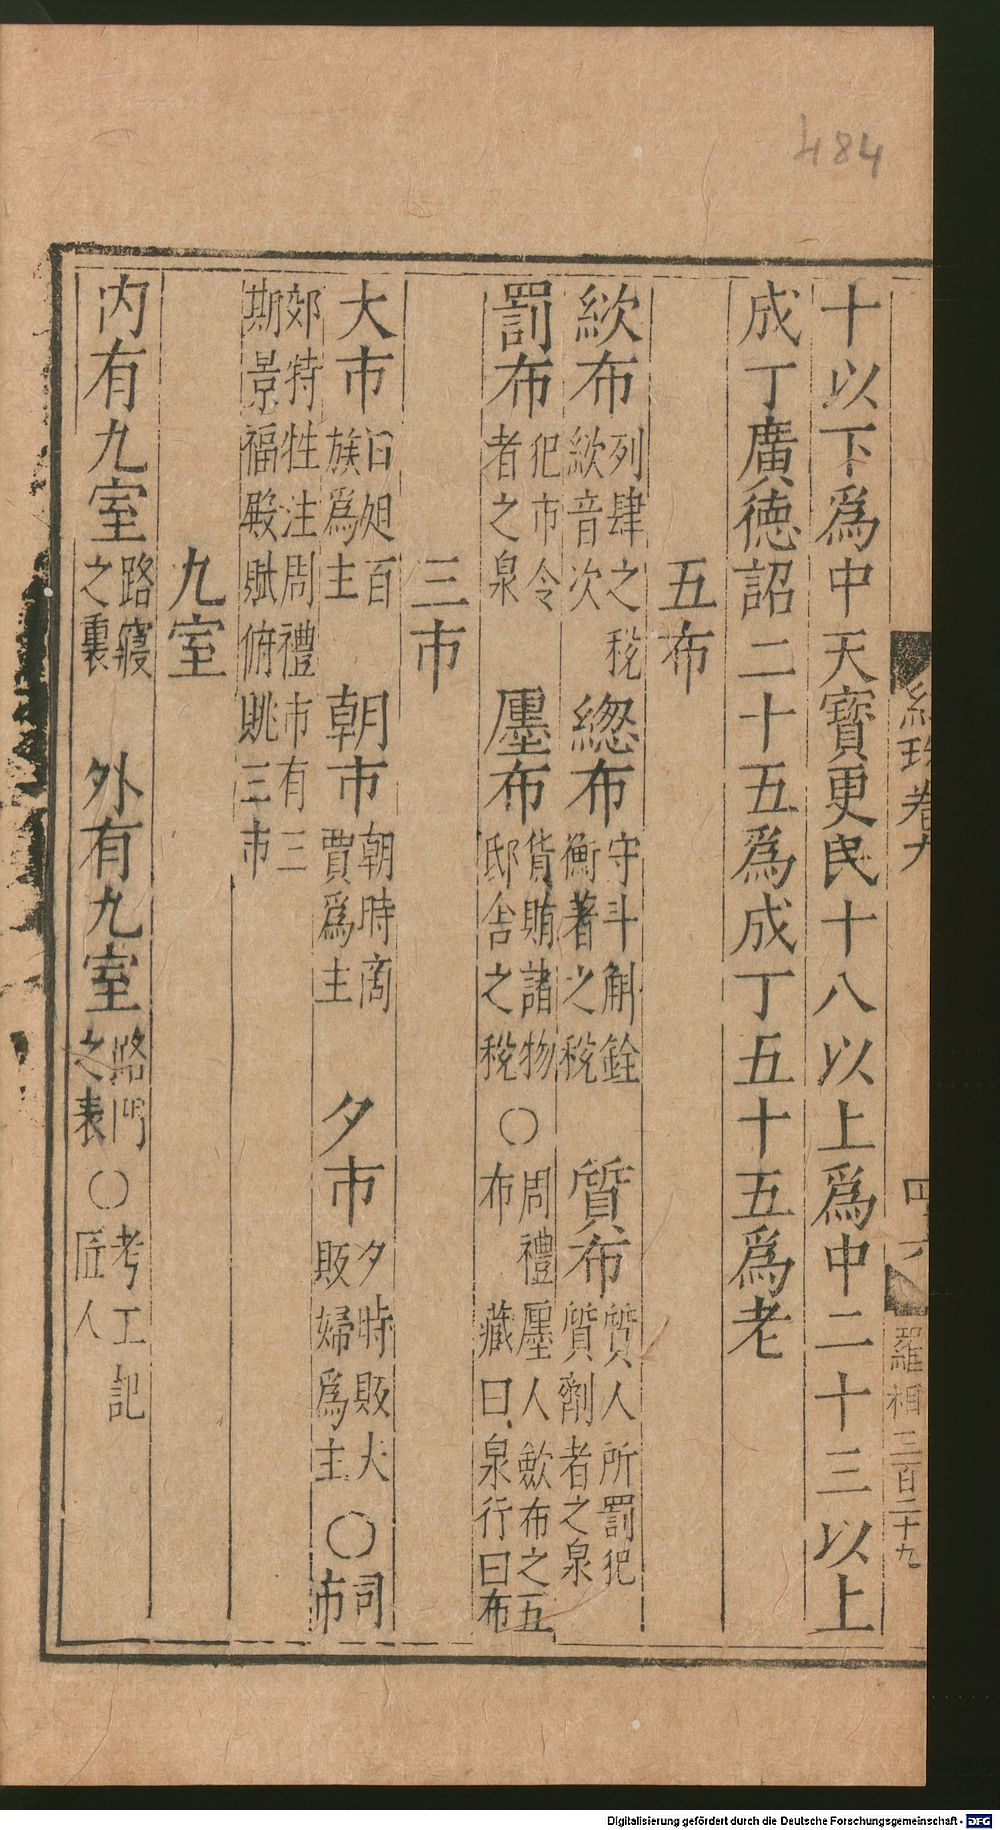 484
十以下爲中天寶更民十八以上爲中二十三以上
成丁廣徳詔二十五爲成丁五十五爲老
五布
絘布列肆之稅絘音次 緫布守斗斛銓衡著之稅 質布質人所罰犯質劑者之泉
罰布犯市令者之泉 廛布貨賄諸物邸舍之稅〇周禮廛人歛布之五布藏曰泉行曰布
三市
大市日㫼百族爲主 朝市朝時商賈爲主 夕市夕時販夫販婦爲主〇司市
郊特牲注周禮市有三斯景福殿賦俯眺三市
九室
内有九室路寢之裏 外有九室路門之表〇考工記匠人
卷九
羅相三百二十九
Digitalisierung gefördert durch die Deutsche Forschungsgemeinschaft - DFG